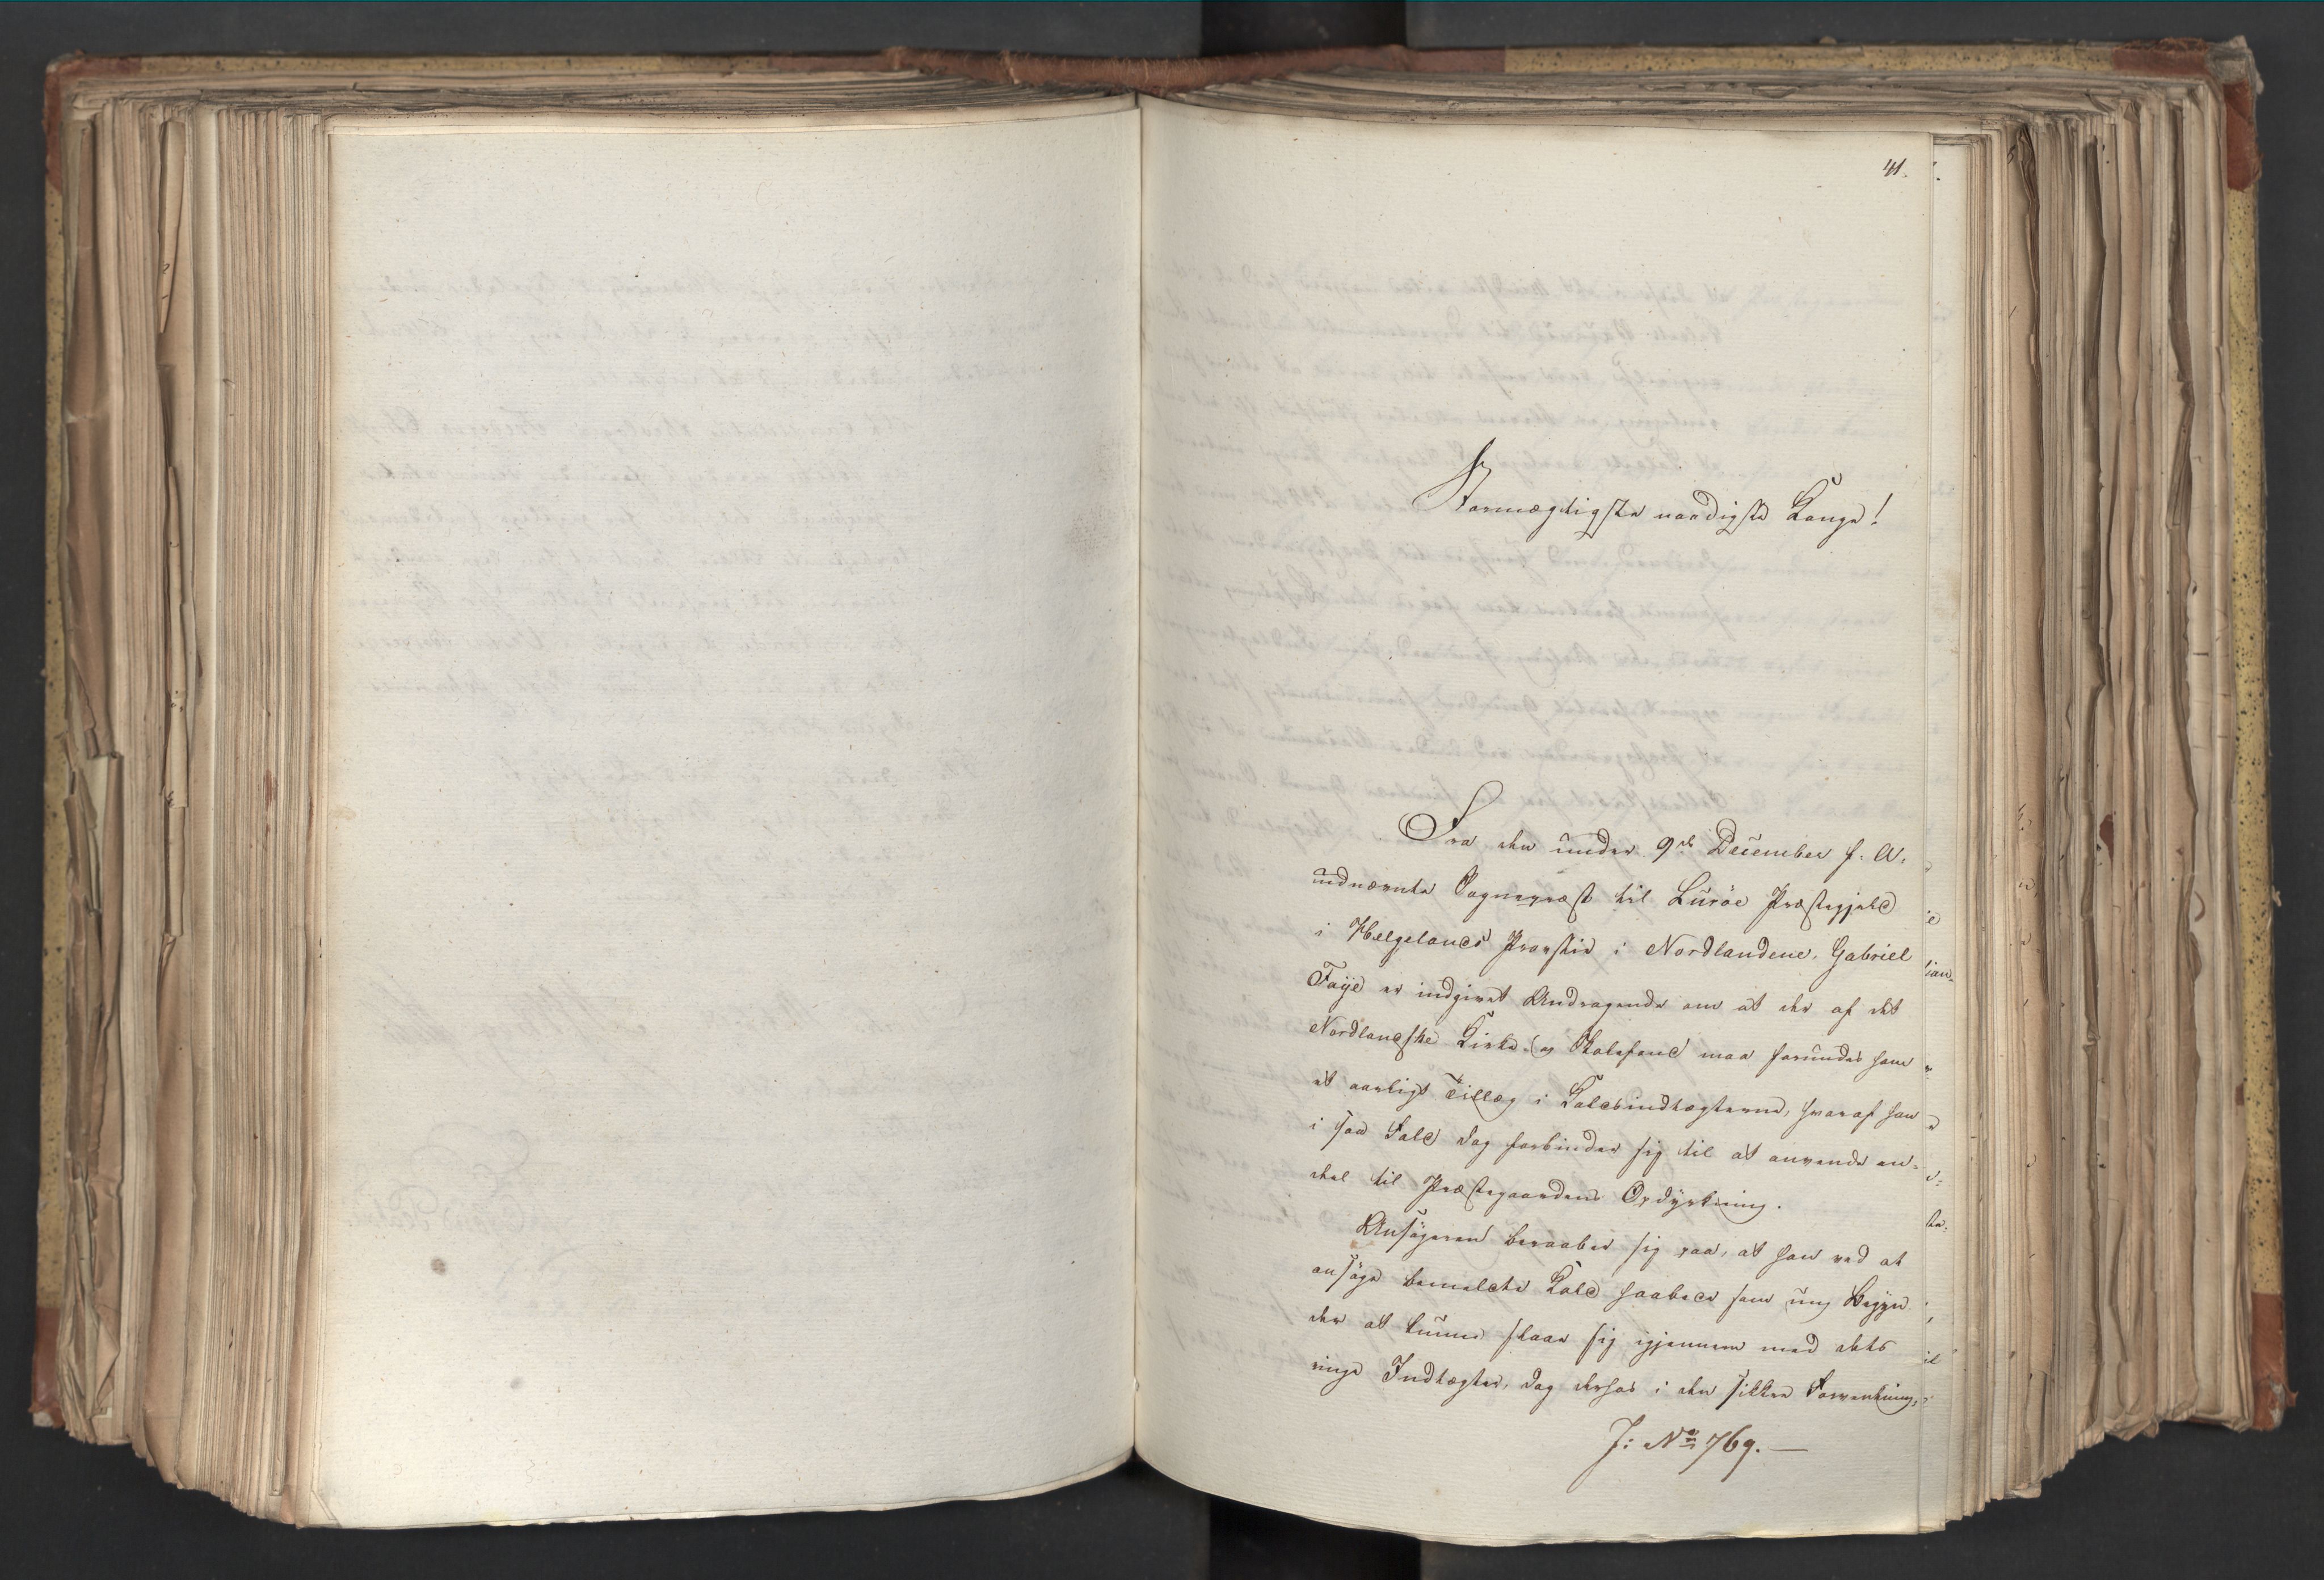 41.
Stormægtigste naadigste Konge!
Fra den under 9de December f. A.
udnævnte Sognepræst til Luröe Præstegjeld
i Helgelands Provstie i Nordlandene, Gabriel
Faÿe er indgivet Andragende om at der af det
Nordlandske Kirke- og Skolefond maa forundes ham
et aarligt Tillæg i Kaldsindtægterne, hvoraf han
i saa Fald dog forbinder sig til at anvende en
deel til Præstegaardens Opdÿrkning.
Ansögeren beraaber sig paa, at han ved at
ansöge bemeldte Kald haabede som ung Begÿn
der at kunne slaae sig igjennem med dets
ringe Indtægter, dog derhos i den sikkre Forventning,
J: No 769.—